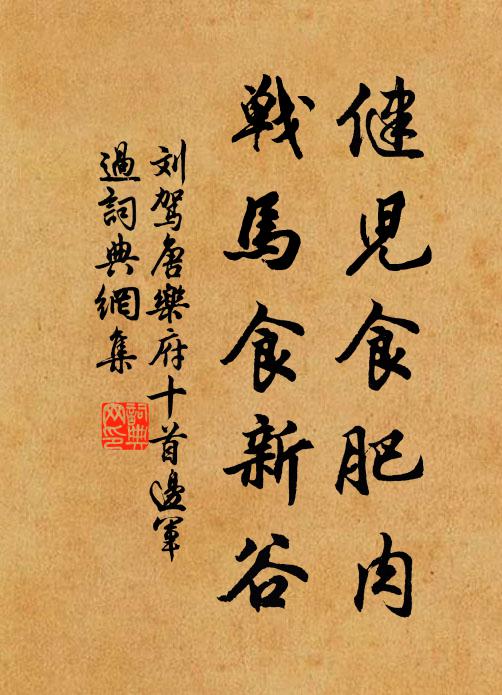 健児食肥肉
戦馬食新谷
刘駕唐樂府十首邊軍
過詞典網集
詞典
网印